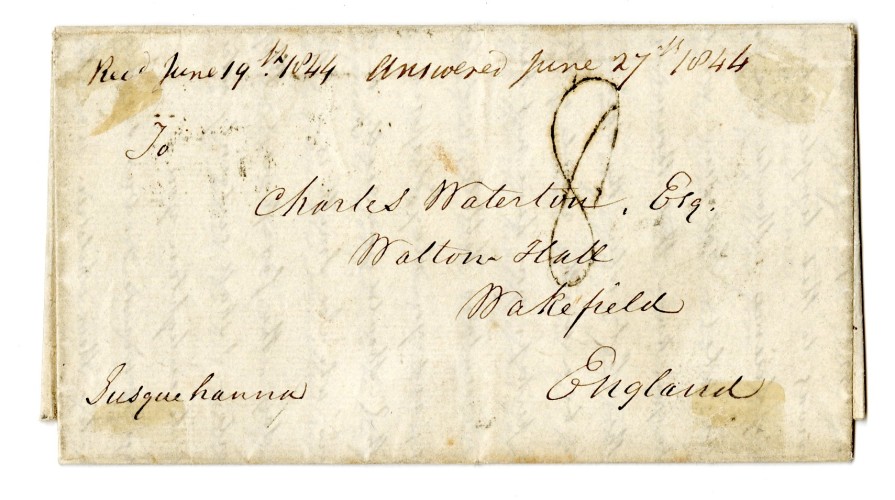 Recd June 19th. 1844 Answered June 27th 1844
To
8
Charles Waterton, Esq.
Walton Hall
Wakefield
England
Susquehanna